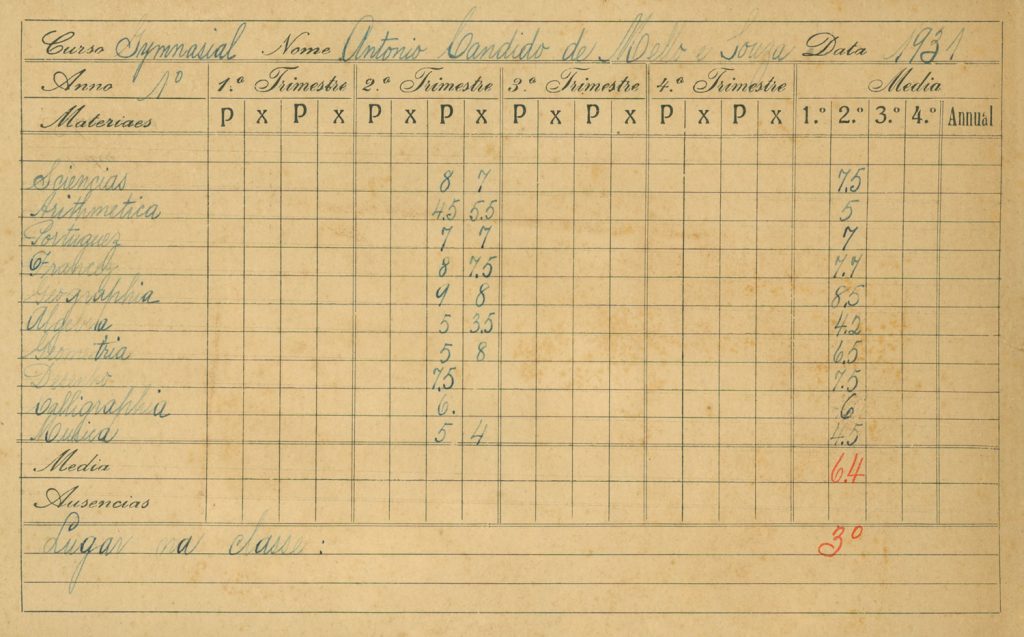 Curso Gymnasial Nome Antonio Candido de Mello e Souza Data 1931
Anno 1º 1.º Trimestre 2.º Trimestre 3.º Trimestre 4.º Trimestre Media
Materiaes P x P x P x P x P x P x P x P x 1.º 2.º 3.º 4.º Annual
Sciencias 8 7 7.5
Arithmetica 4.5 5.5 5
Portuguez 7 7 7
Francez 8 7.5 7.7
Geographia 9 8 8.5
Algebra 5 3.5 4.2
Geometria 5 8 6.5
Desenho 7.5 7.5
Calligraphia 6. 6
Musica 5 4 4.5
Media 6.4
Ausencias
Lugar na classe: 3º